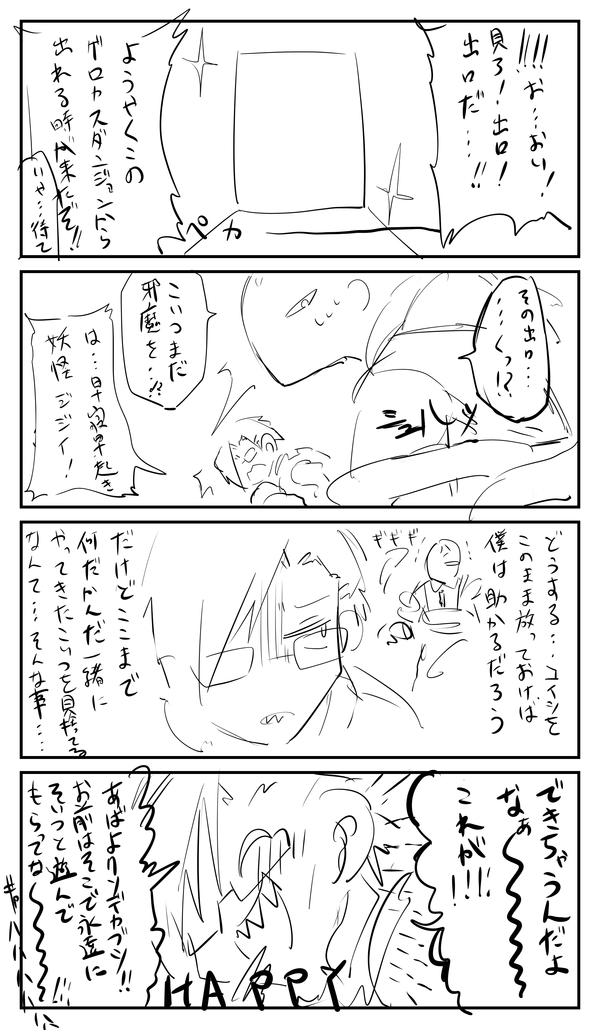 !!!!お…おい!
見ろ!出口!
出口だ…!!
ペカ
ようやくこの
ゲロカスダンジョンから
出れる時が来たぞ!!
いや…待て
その出口…
…くっ!?
こいつまだ
邪魔を…!?
は…早寝早起き
妖怪ジジイ!
どうする…コイツを
このまま放っておけば
僕は助かるだろう
ギギギ
だけどここまで
何だかんだ一緒に
やってきたこいつを見捨てる
なんて…そんな事…
できちゃうんだよ
なぁ〜
これが!!!
HAPPY
あばよリンディカブン!!
お前はそこで永遠に
そいつと遊んで
もらってな〜!!